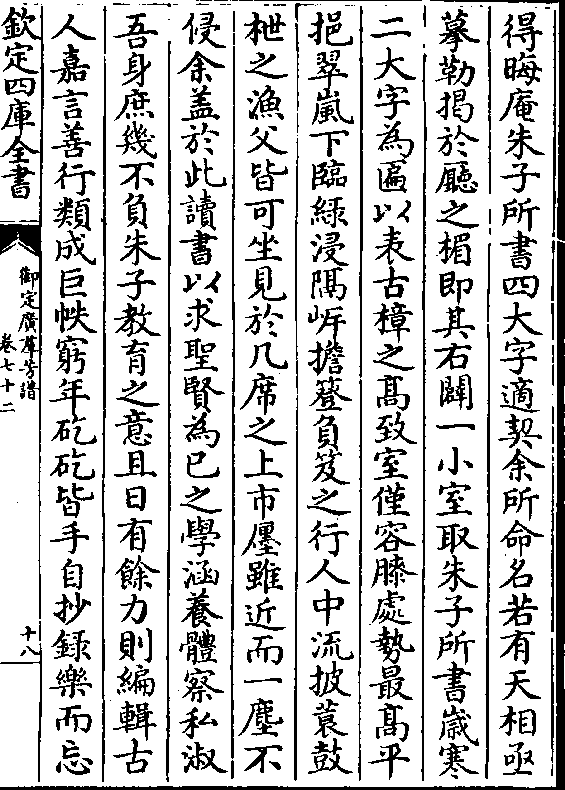 得晦庵朱子所書四大字適契余所命名若有天相亟
摹勒揭於廳之楣即其右闢一小室取朱子所書歲寒
二大字為匾以表古樟之髙致室僅容膝處勢最髙平
挹翠嵐下臨緑浸隔岍擔簦負笈之行人中流披蓑鼓
枻之漁父皆可坐見於几席之上市廛雖近而一塵不
侵余盖於此讀書以求聖賢為已之學涵養體察私淑
吾身庶幾不負朱子教育之意且日有餘力則編輯古
人嘉言善行類成巨帙窮年矻矻皆手自抄録樂而忘
欽定四庫全書
御定廣羣芳譜
卷七十二
十八